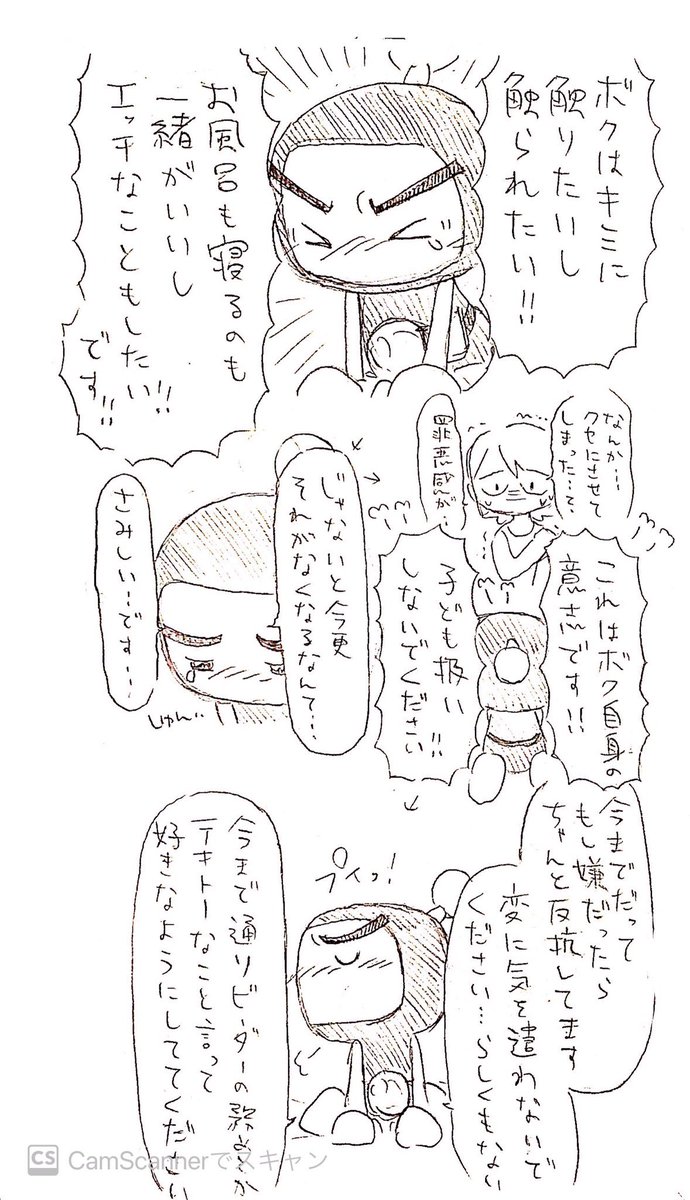 ボクはキミに
触りたいし
触られたい!!
お風呂も寝るのも
一緒がいいし
エッチなこともしたい!!
です!!
なんか…
クセにさせて
しまった…て、
罪悪感が…
これはボク自身の
意志です!!
子ども扱い
しないでください!!
じゃないと今更
それがなくなるなんて…
さみしい…です…
しゅん…
今までだって
もし嫌だったら
ちゃんと反抗してます
変に気を遣わないで
ください…らしくもない
プイっ!
今まで通りビーダーの務めとか
テキトーなこと言って
好きなようにしててください
CS CamScannerでスキャン